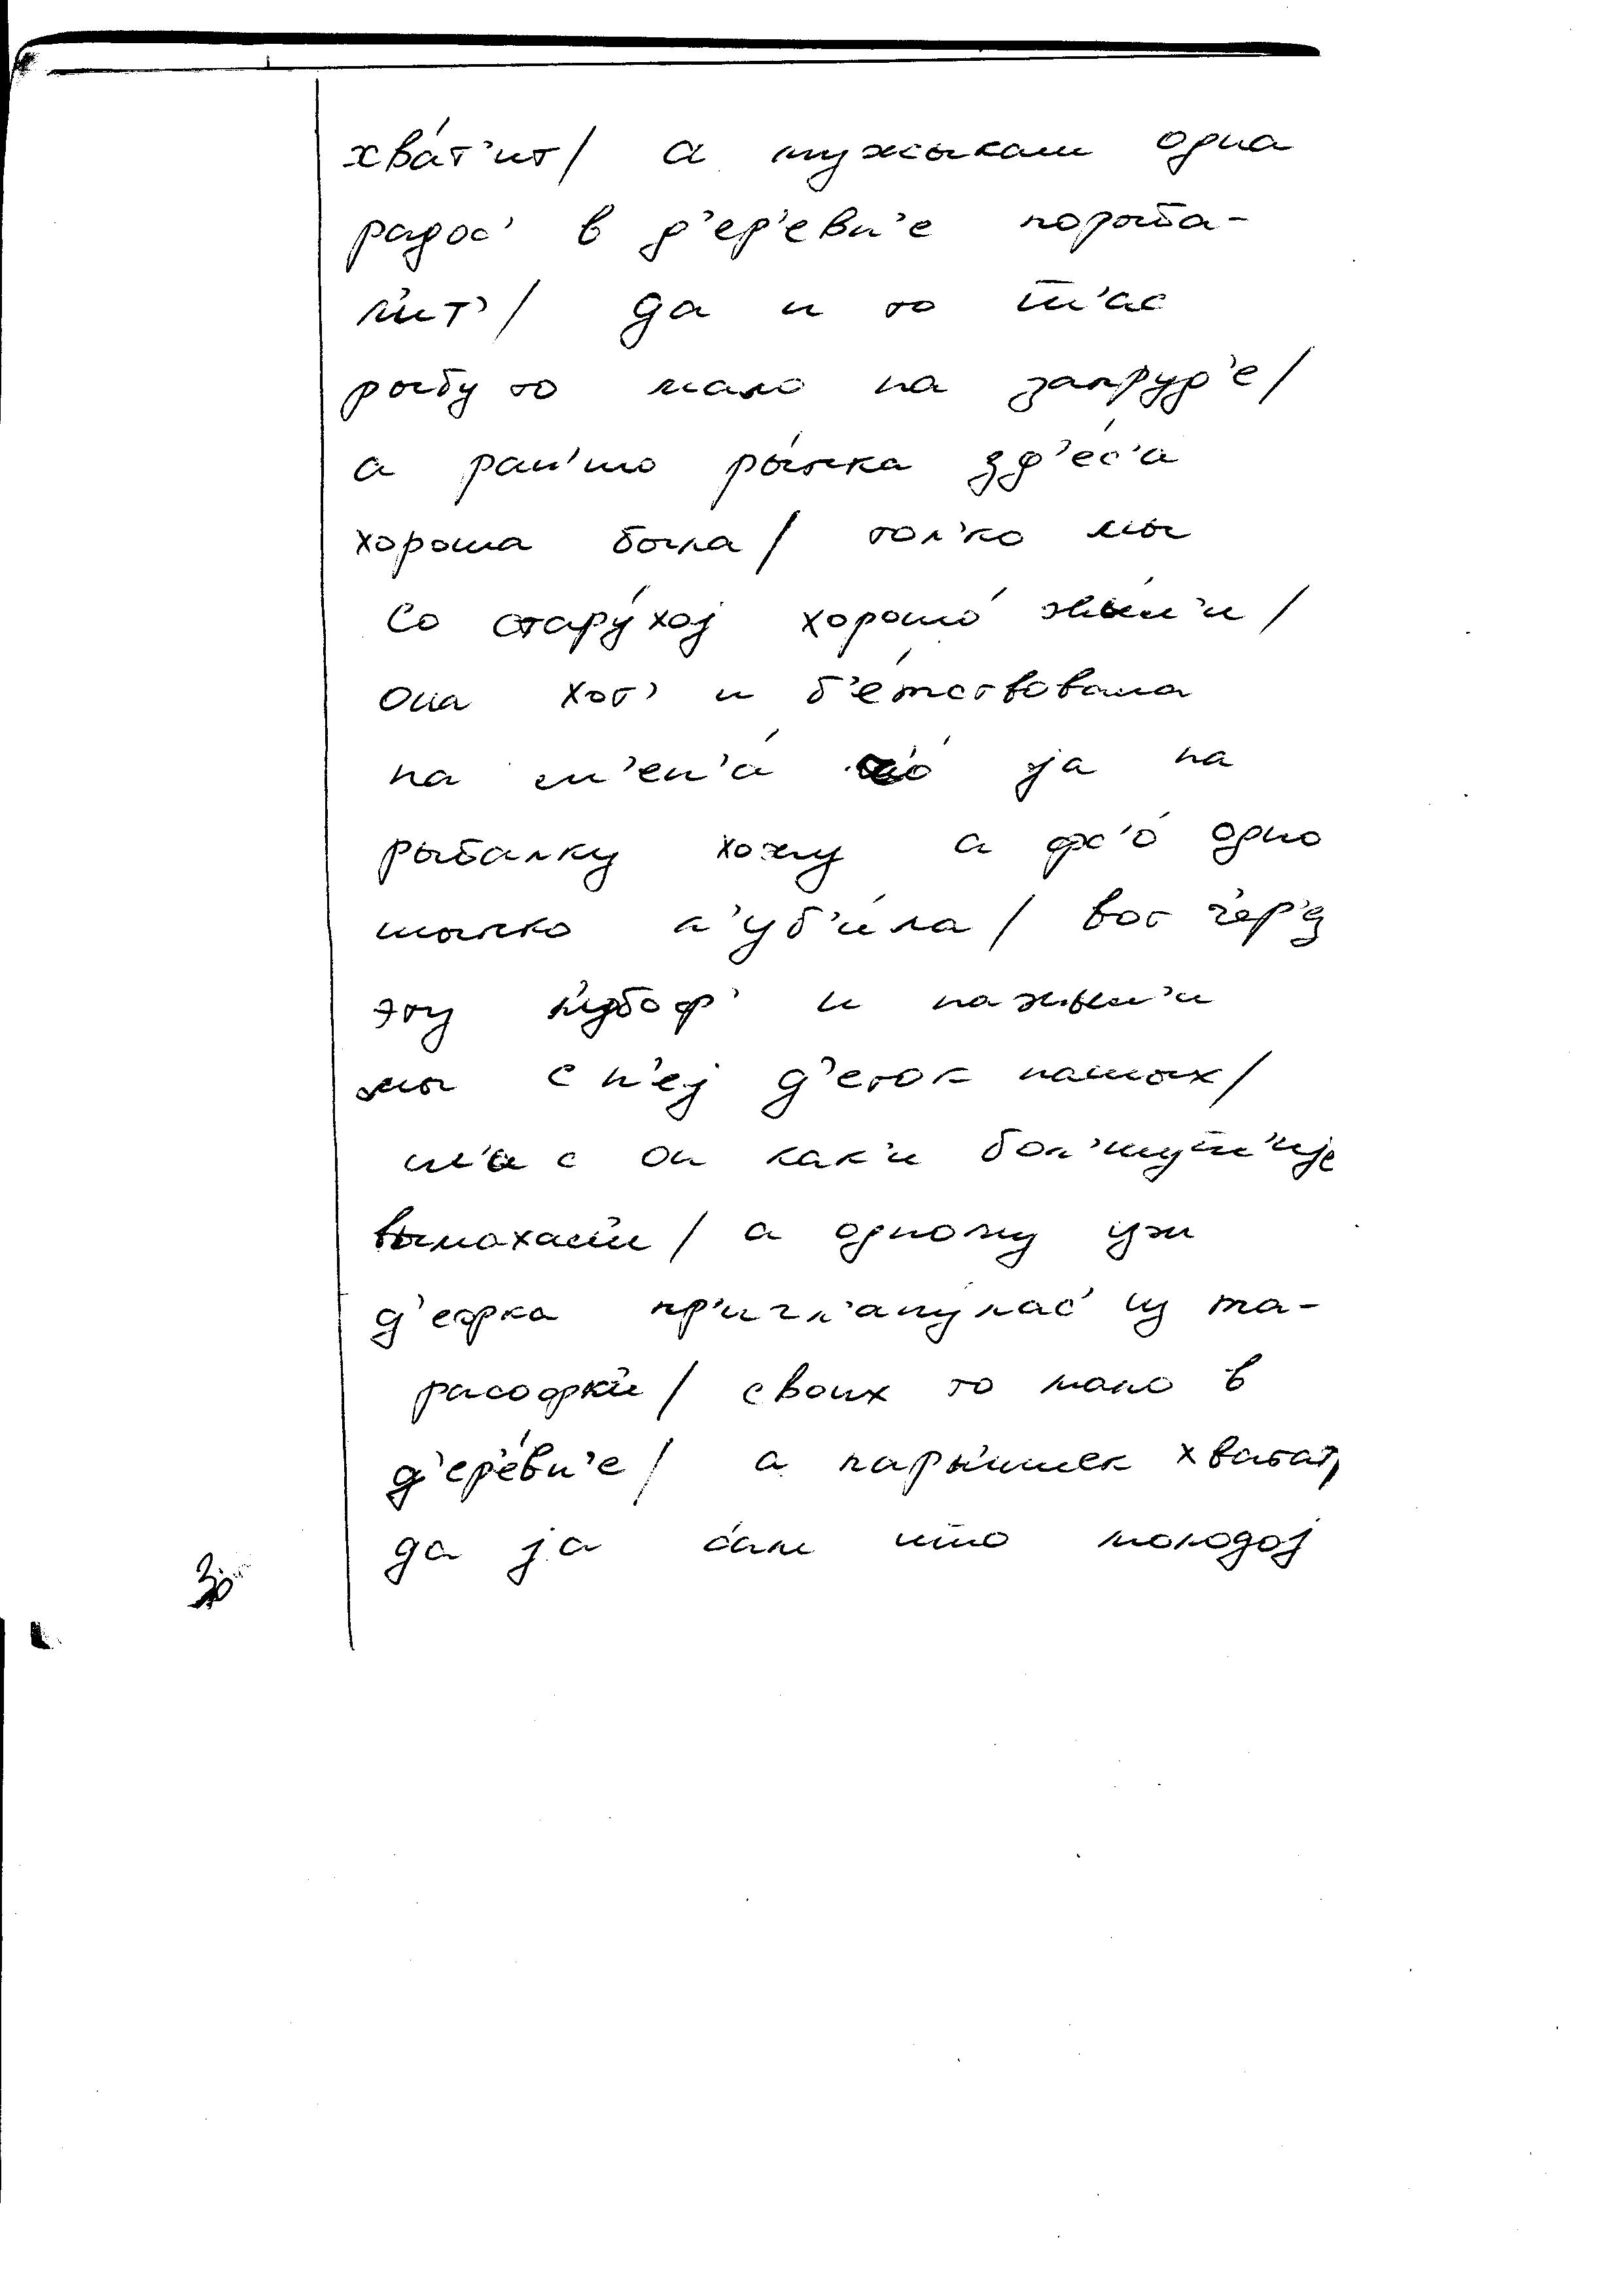 хва́т'ит/ а мужыкам одна
радос' в д'ер'евн'е порыба-
л'ит'/ да и то ш'ас
рыбу то мало на запруд'е/
а ран'шо ры́пка зд'е́с'а
хороша была/ тол'ко мы
со стару́хој хорошо́ жыл'и/
она хот' и б'е́тствовала
на м'ен'а́ што́ ја на
рыбалку хожу а фс'о́ одно
л'уб'и́ла/ вот чер'з
эту л'убоф' и нажыл'и
мы с н'еј д'еток нашых/
ш'ас он как'и бол'шуш'ије
вымахал'и/ а одному уж
д'ефка пр'игл'ану́лас' из та-
расофк'и/ своих то мало в
д'ер'е́вн'е/ а парышек хватат,
да ја сам што молодој
30